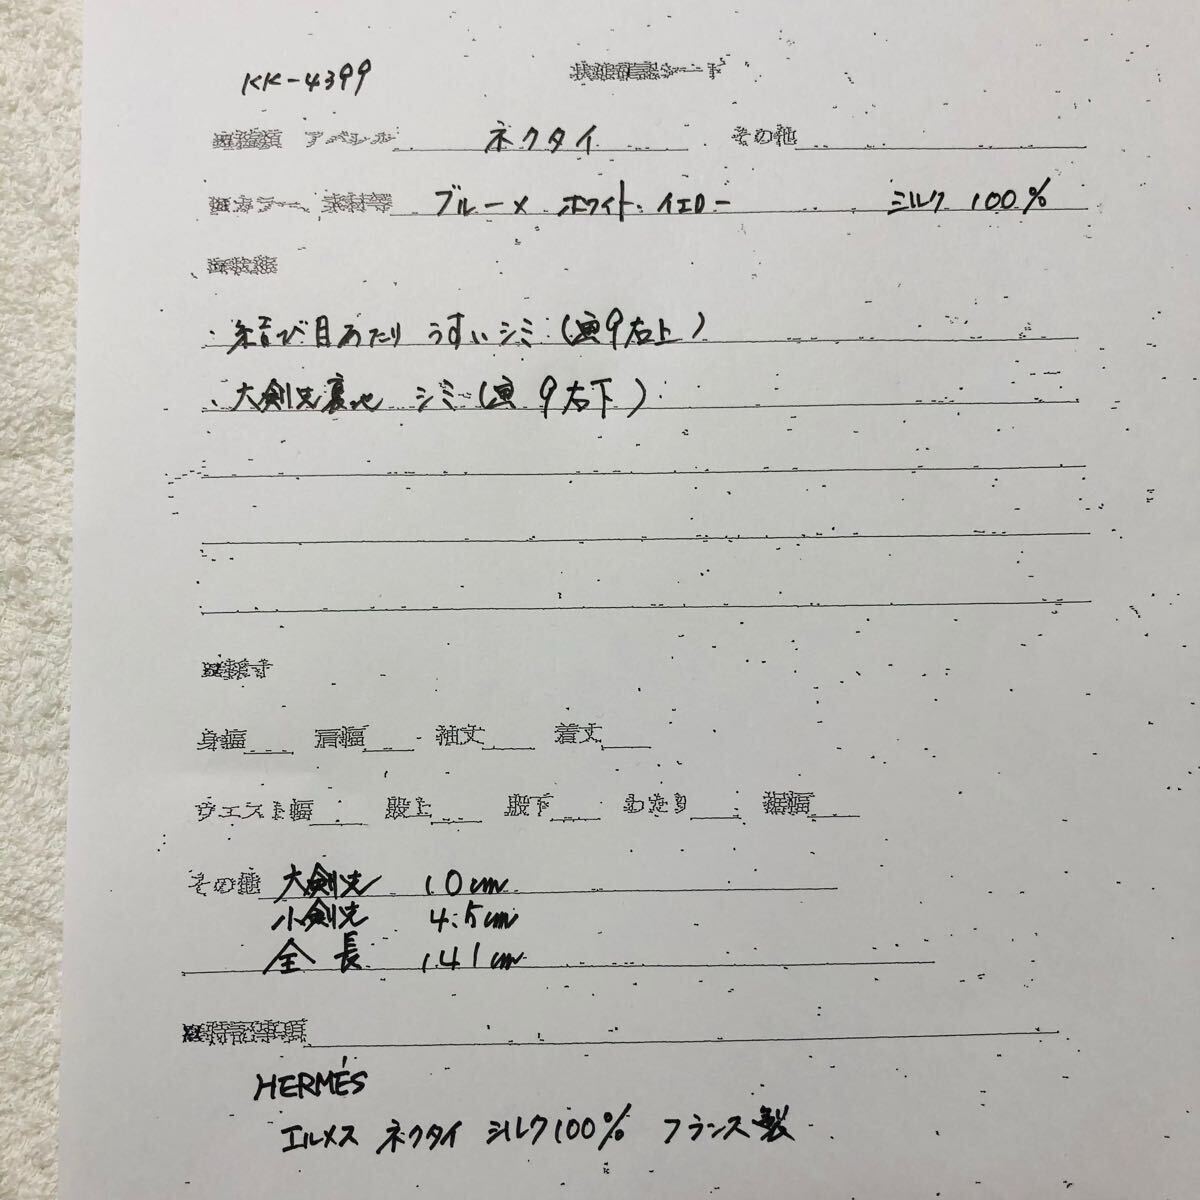 KK-4399 状態確認シート
※種類 アパレル ネクタイ その他
※カラー、素材等 ブルー×ホワイト・イエロー シルク 100%
※状態
・結び目あたり うすいシミ (画9右上)
・大剣先裏地 シミ (画9右下)
※採寸
身幅 肩幅 袖丈 着丈
ウエスト幅 股上 股下 わたり 裾幅
その他 大剣先 10cm
小剣先 4.5cm
全長 141cm
※特記事項
HERMÉS
エルメス ネクタイ シルク100% フランス製